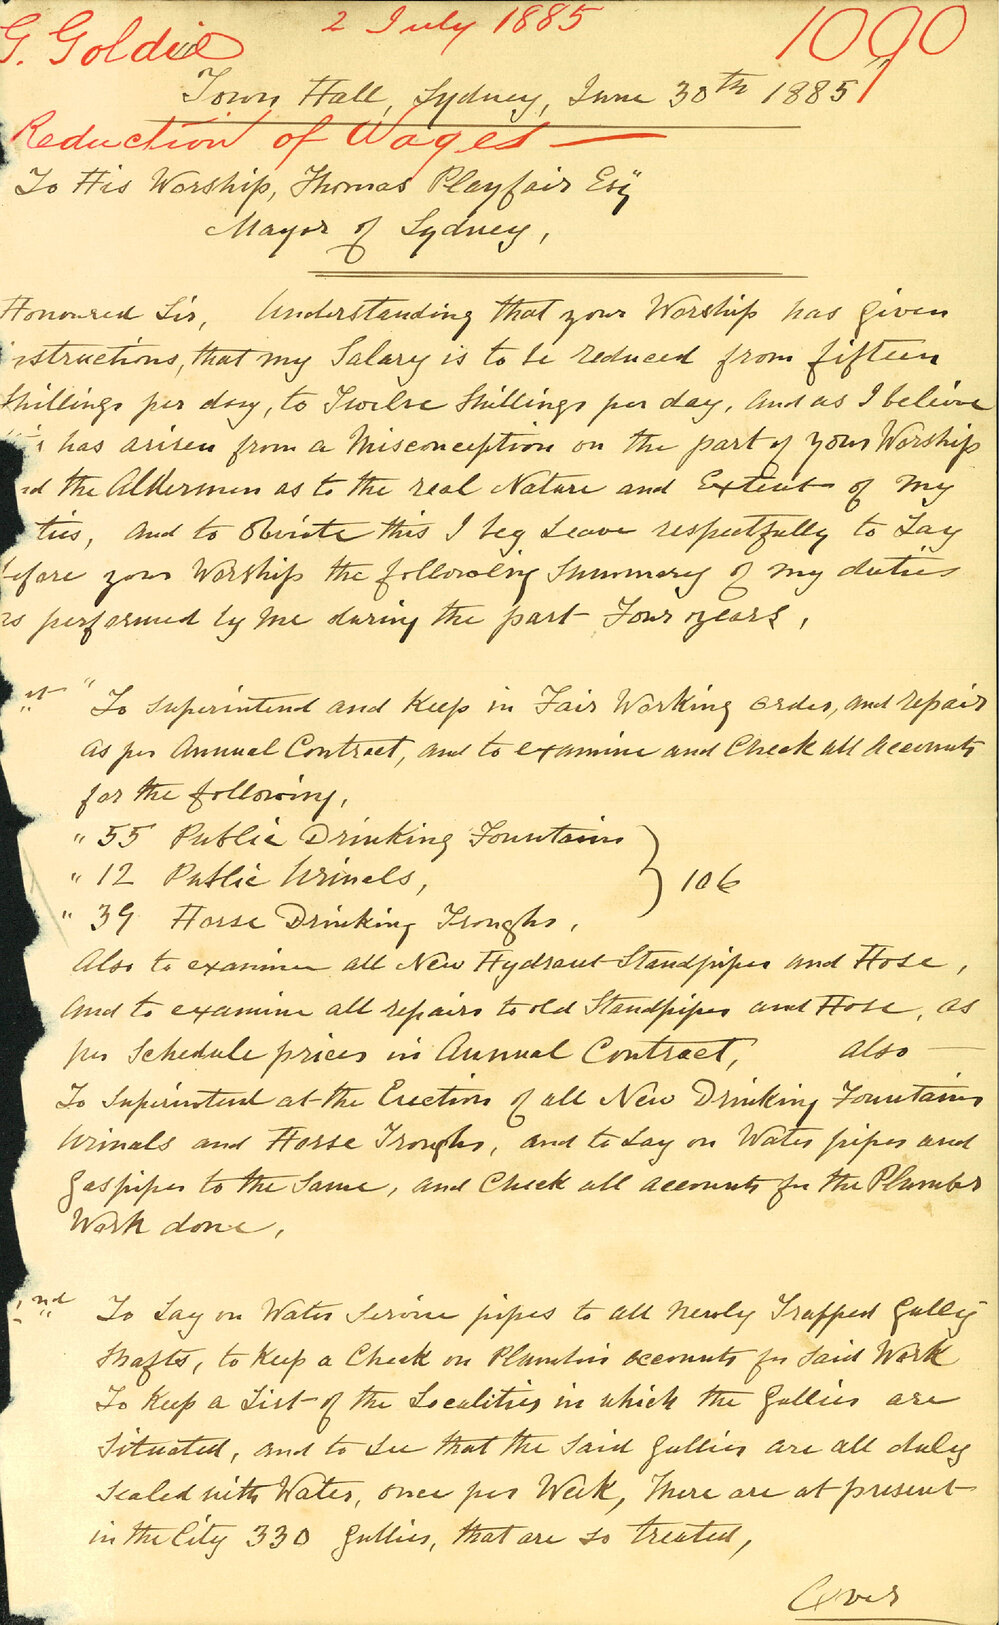 G. Goldie 2 July 1885 1090
Town Hall, Sydney, June 30th 1885
Reduction of Wages —
To His Worship, Thomas Playfair Esqr
Mayor of Sydney,
Honoured Sir, Understanding that your Worship has given
nstructions, that my Salary is to be reduced from fifteen
Shillings per day, to Twelve Shillings per day, and as I believe
has arisen from a Misconception on the part of your Worship
nd the Aldermen as to the real Nature and Extent of my
ties, and to Obviate this I beg Leave respectfully to Lay
before your Worship the following Summary of my duties
as performed by me during the past Four years,
st " To Superintend and Keep in Fair Working order, and repair
as per Annual Contract, and to examine and Check all Accounts
for the following,
" 55 Public Drinking Fountains
" 12 Public Urinals, } 106
" 39 Horse Drinking Troughs,
Also to examine all New Hydrant Standpipes and Hose,
and to examine all repairs to old Standpipes and Hose, as
per Schedule prices in Annual Contract, also —
To Superintend at the Erection of all New Drinking Fountains
Urinals and Horse Troughs, and to Lay on Water pipes and
Gaspipes to the Same, and Check all accounts for the Plumbers
Work done,
nd To Lay on Water Service pipes to all newly Trapped Gully
Shafts, to Keep a Check on Plumbers accounts for Said Work
To Keep a List of the Localities in which the Gullies are
Situated, and to See that the Said Gullies are all duly
Sealed with Water, once per Week, There are at present
in the City 330 Gullies, that are so treated,
Over